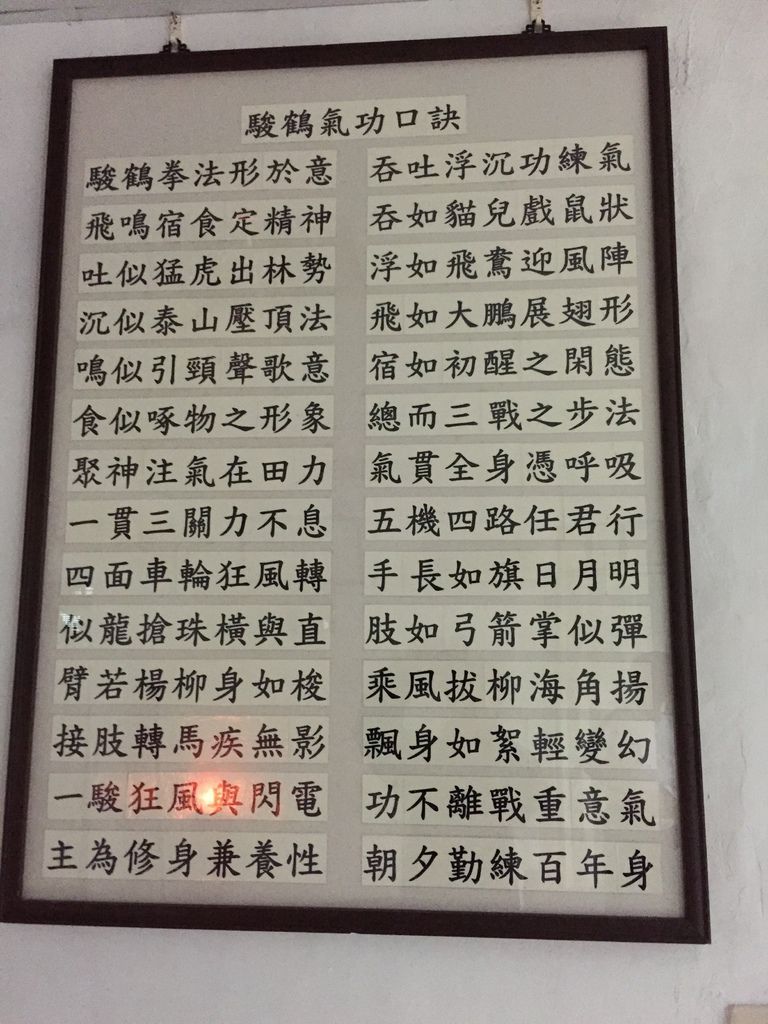 駿鶴氣功口訣
駿鶴拳法形於意
吞吐浮沉功練氣
飛鳴宿食定精神
吞如貓兒戲鼠狀
吐似猛虎出林勢
浮如飛迎風陣
沉似泰山壓頂法
飛如大鵬展翅形
鳴似引頸聲歌意
宿如初醒之閑態
食似啄物之形象
總而三戰之步法
聚神注氣在田力
氣貫全身憑呼吸
一貫三關力不息
五機四路任君行
四面車輪狂風轉
手長如旗日月明
似龍搶珠橫與直
肢如弓箭掌似彈
臂若楊柳身如梭
乘風拔柳海角揚
接肢轉馬疾無影
飄身如絮輕變幻
一駿狂風與閃電
功不離戰重意氣
主為修身兼養性
朝夕勤練百年身